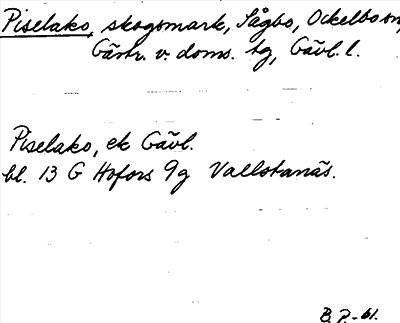 Piselako, skogsmark, Sågbo, Ockelbo sn,
Gästr. v. doms. tg, Gävl. l.
Piselako, ek Gävl.
bl. 13 G Hofors 9g Vallstanäs.
B. P. -61.